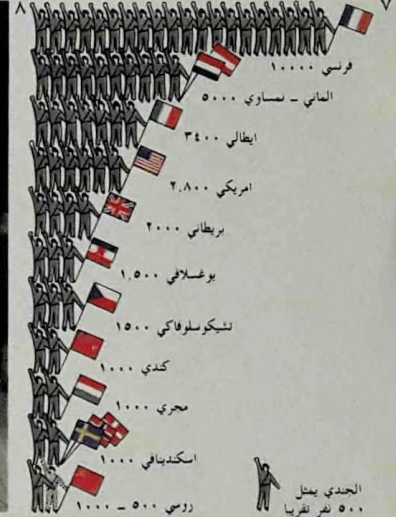 ٨
فرنسي ١٠٠٠٠
الماني – نمساوي ٥٠٠٠
ايطالي ٣٤٠٠
امريكي ٢,٨٠٠
بريطاني ٢٠٠٠
يوغسلافي ١,٥٠٠
تشيكوسلوفاكي ١٥٠٠
كندي ١٠٠٠
مجري ١٠٠٠
اسكندينافي ١٠٠٠
روسي ٥٠٠ – ١٠٠٠
الجندي يمثل
٥٠٠ نفر تقريبا